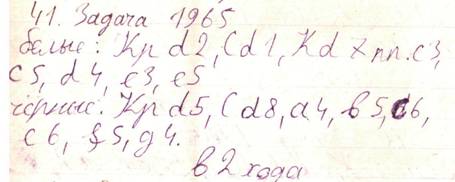 41. Задача 1965
белые: Кр d2, Cd1, Kd7 пп. c3,
c5, d4, e3, e5
чёрные: Кр d5, Cd8, a4, b5, c6,
e6, f5, g4.
в 2 хода